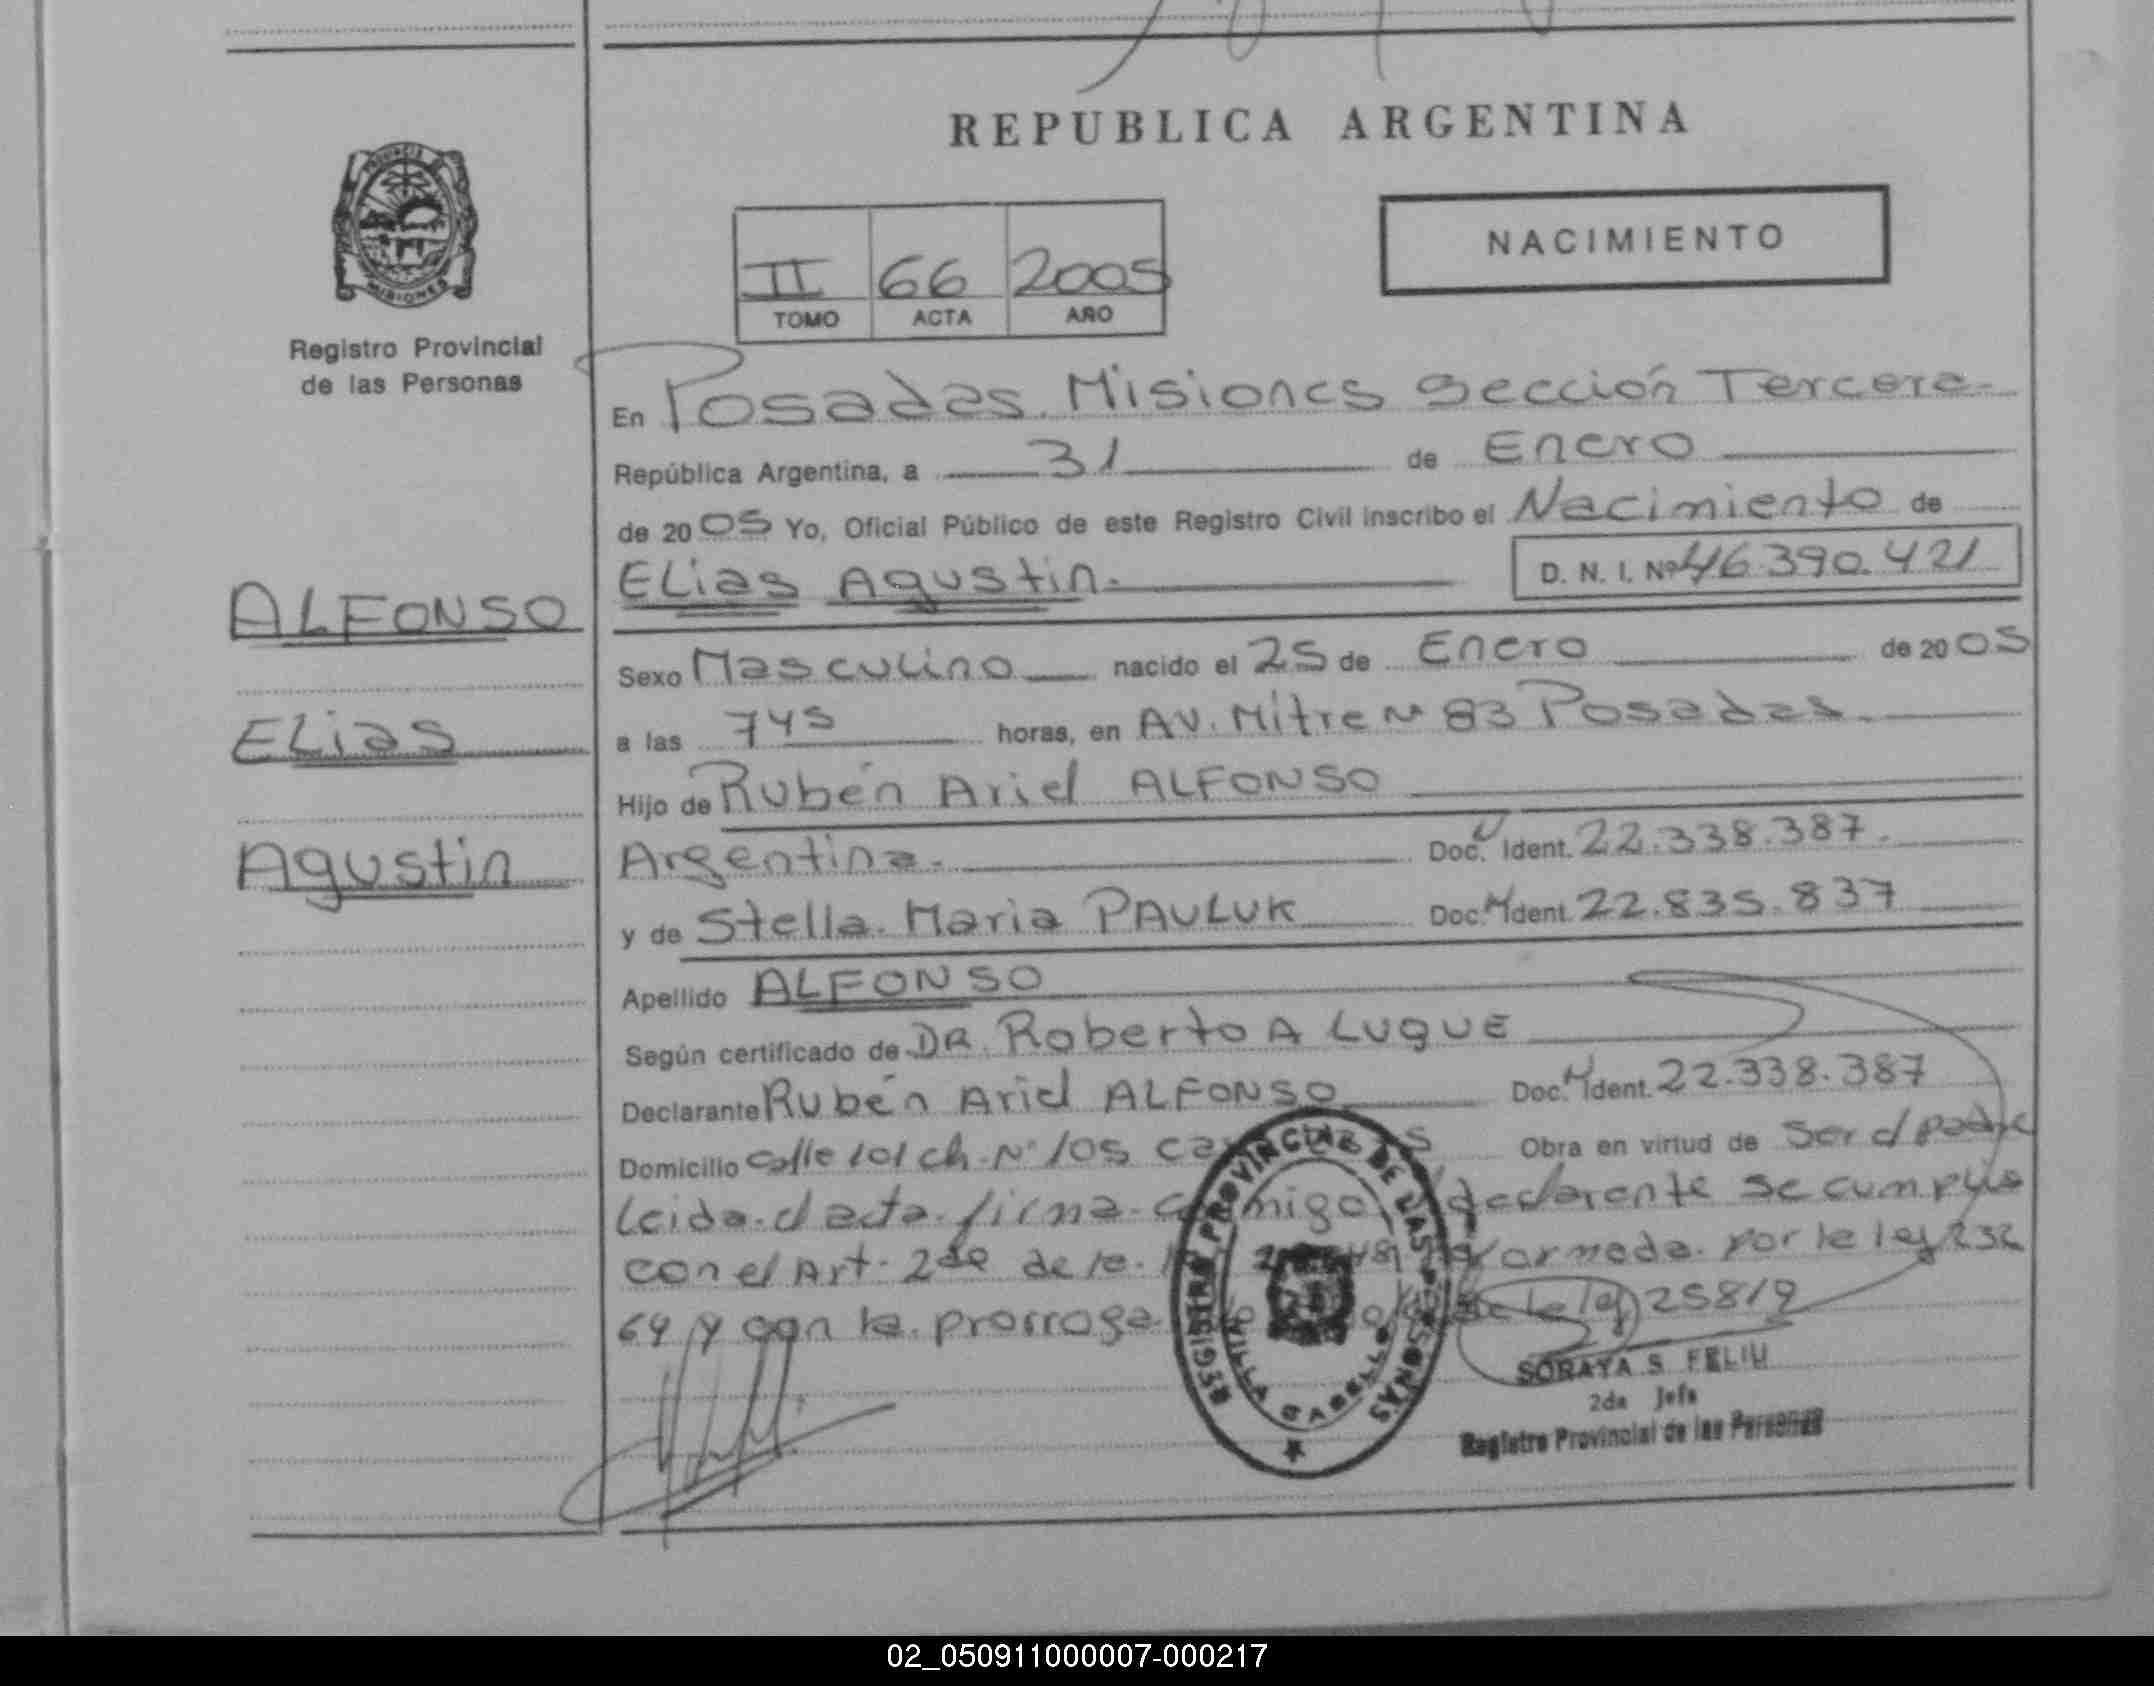 REPUBLICA ARGENTINA
PROVINCIA DE
MISIONES
Registro Provincial
de las Personas
NACIMIENTO
II 66 2005
TOMO ACTA AÑO
En Posadas Misiones Sección Tercera
República Argentina, a 31 de Enero
de 2005 Yo, Oficial Público de este Registro Civil inscribo el Nacimiento de
ELias Agustin. D. N. I. Nº 46.390.421
ALFONSO
ELias
Agustin
Sexo Masculino nacido el 25 de Enero de 2005
a las 745 horas, en AV. Mitre Nº 83 Posadas
Hijo de Rubén Ariel ALFONSO
Argentina. Doc. Ident. 22.338.387.
y de Stella Maria PAULUK Doc. Ident. 22.835.837
Apellido ALFONSO
Según certificado de DR. Roberto A LUQUE
Declarante Rubén Ariel ALFONSO Doc. Ident. 22.338.387
Domicilio calle 101 ch. Nº 105 Obra en virtud de Ser el padre
Leida el acta firma conmigo el declarante se cumplio
con el Art. 2do de la por la ley 232
64 y con la prorroga de la ley 25819
REGISTRO PROVINCIAL DE LAS PERSONAS
VILLA CABELLO
SORAYA S FELIU
2da Jefa
Registro Provincial de las Personas
02_050911000007-000217